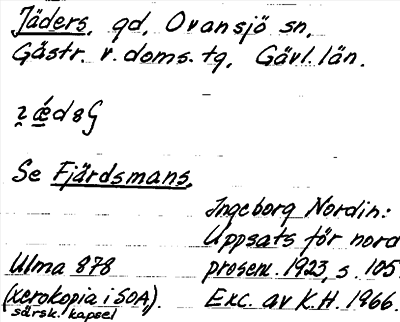 Jäders, gd, Ovansjö sn,
Gästr. v. doms. tg, Gävl. län.
Se Fjärdsmans.
Ingeborg Nordin:
Uppsats för nord
Ulma 878
prosem. 1923, s. 105
(xerokopia i SOA).
Exc. av K.H. 1966.
särsk. kapsel